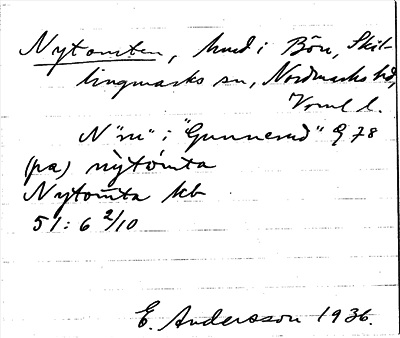 Nytomten, hmd i Bön, Skil-
lingmarks sn, Nordmarks hd,
Vrml l.
N "ru" i "Gunnerud" Q 78
(pa) nỳtómta
Nytomta kb
51: 6 2/10
E. Andersson 1936.